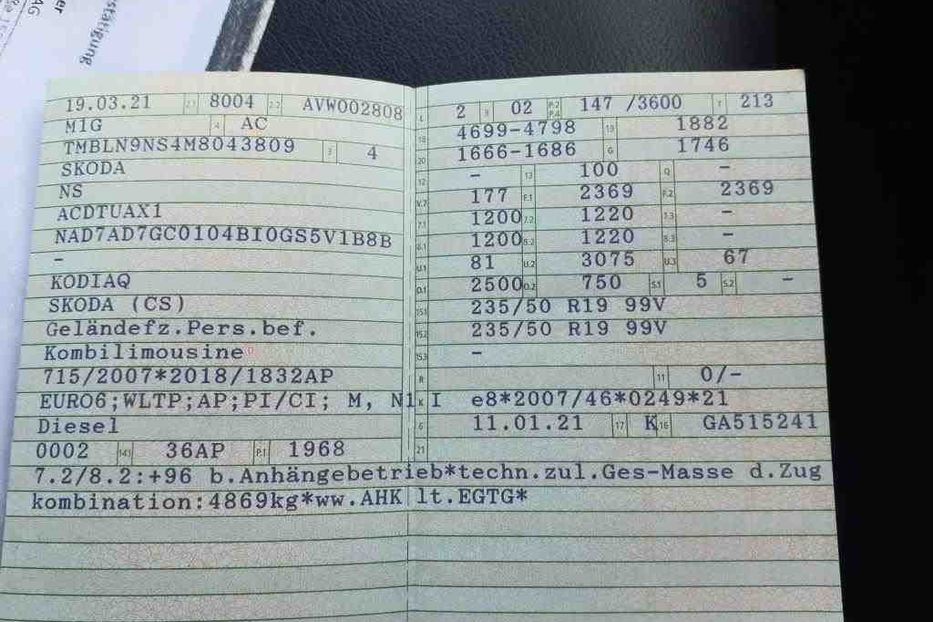 AG
er
stätigung
19.03.21 2.1 8004 2.2 AVW002808
M1G 4 AC
TMBLN9NS4M8043809 3 4
SKODA
NS
ACDTUAX1
NAD7AD7GC0104BI0GS5V1B8B
–
KODIAQ
SKODA (CS)
Geländefz.Pers.bef.
Kombilimousine
715/2007*2018/1832AP
EURO6;WLTP;AP;PI/CI; M, N1 I
Diesel
0002 14.1 36AP P.1 1968
L 2 9 02 P.2 P.4 147 /3600 T 213
18 4699-4798 19 1882
20 1666-1686 G 1746
12 – 13 100 Q –
V.7 177 F.1 2369 F.2 2369
7.1 1200 7.2 1220 7.3 –
8.1 1200 8.2 1220 8.3 –
U.1 81 U.2 3075 U.3 67
O.1 2500 O.2 750 S.1 5 S.2 –
15.1 235/50 R19 99V
15.2 235/50 R19 99V
15.3 –
R 11 0/-
K e8*2007/46*0249*21
6 11.01.21 17 K 16 GA515241
21
7.2/8.2:+96 b.Anhängebetrieb*techn.zul.Ges-Masse d.Zug
kombination:4869kg*ww.AHK lt.EGTG*